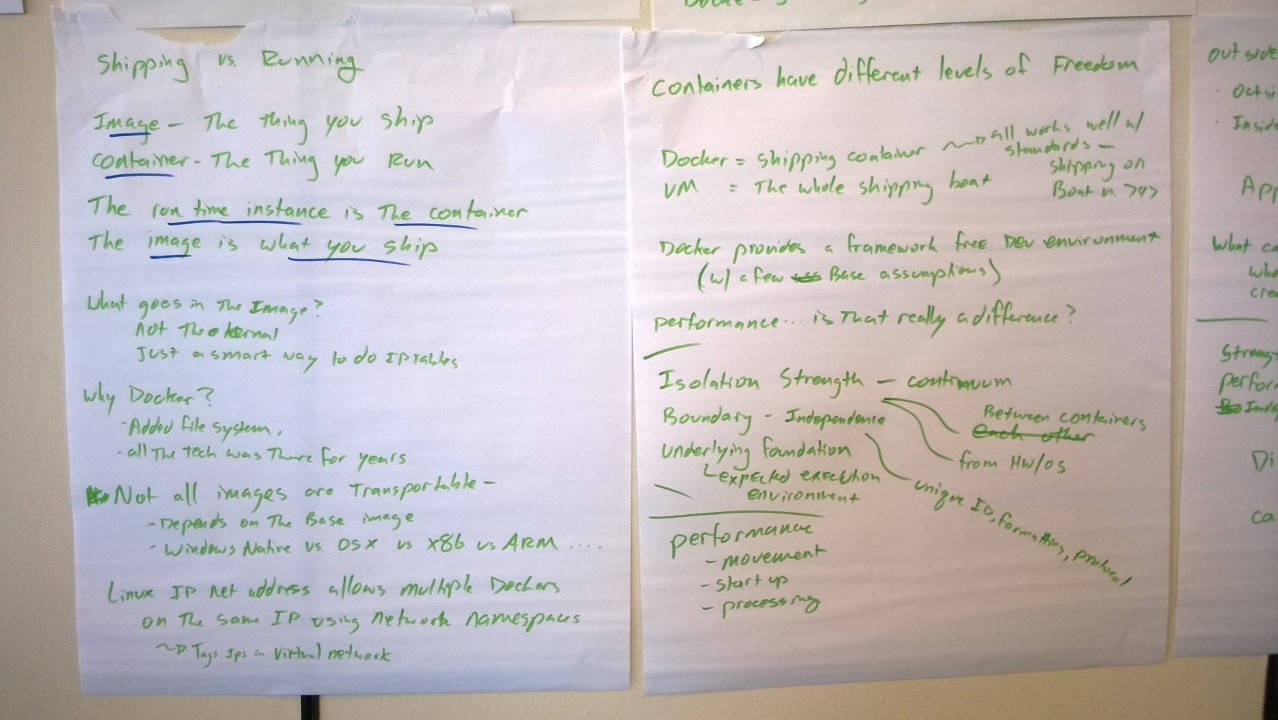 Shipping vs. Running
Image - The thing you ship
container - The Thing you Run
The run time instance is The container
The image is what you ship
What goes in The Image?
not The kernal
Just a smart way to do IP Tables
Why Docker?
- Added file system,
- all The tech was There for years
Not all images are Transportable -
- Depends on The Base image
- Windows Native vs. OSX vs X86 vs ARM ....
Linux IP net address allows multiple Dockers
on The same IP using network namespaces
Tags Ips in Virtual network
Containers have different levels of Freedom
Docker = shipping container
all works well w/
standards -
shipping on
Boat
VM = The whole shipping boat
Docker provides a framework free Dev environment
(w/ a few Base assumptions)
performance... is That really a difference?
Isolation Strength - continuum
Between containers
each other
from HW/OS
Boundary - Independence
unique ID, formatting, protocol
underlying foundation
expected execution
environment
performance
- movement
- start up
- processing
outside
Inside
App
What
Strengt
perfor
Di
ca